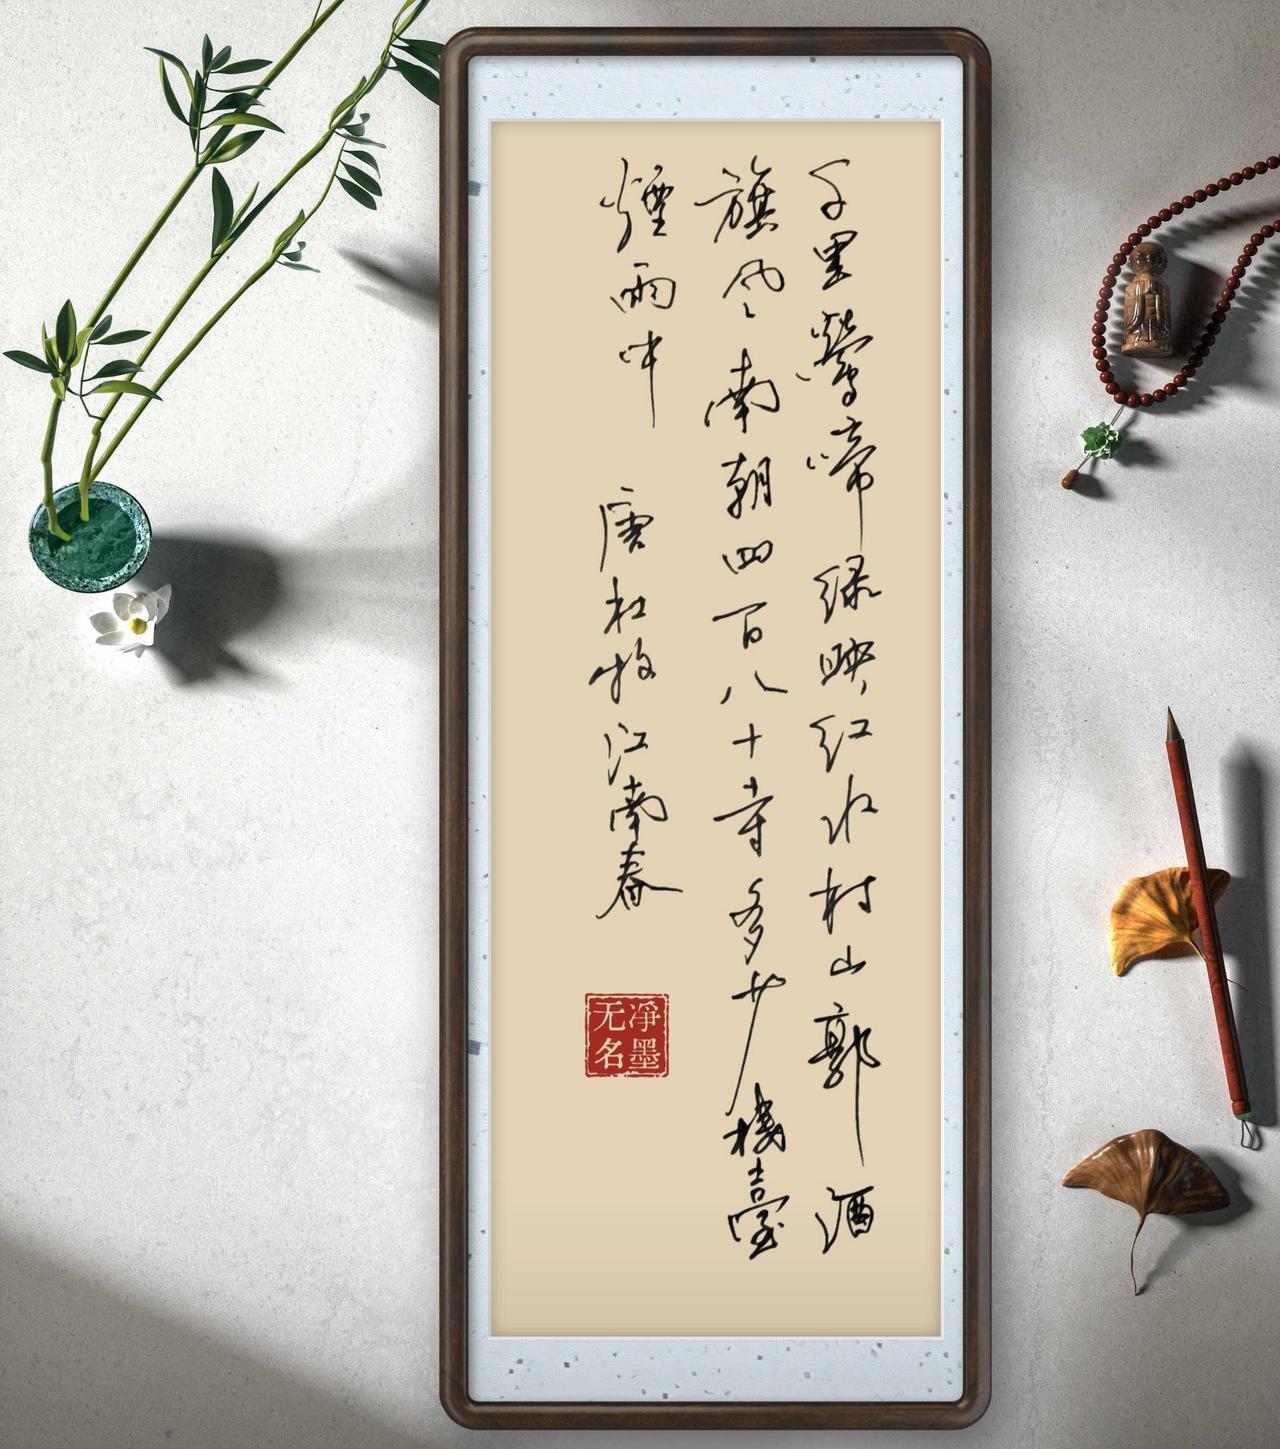 千里鶯啼绿映红水村山郭酒
旗风南朝四百八十寺多少樓臺
煙雨中 唐杜牧江南春
净墨无名